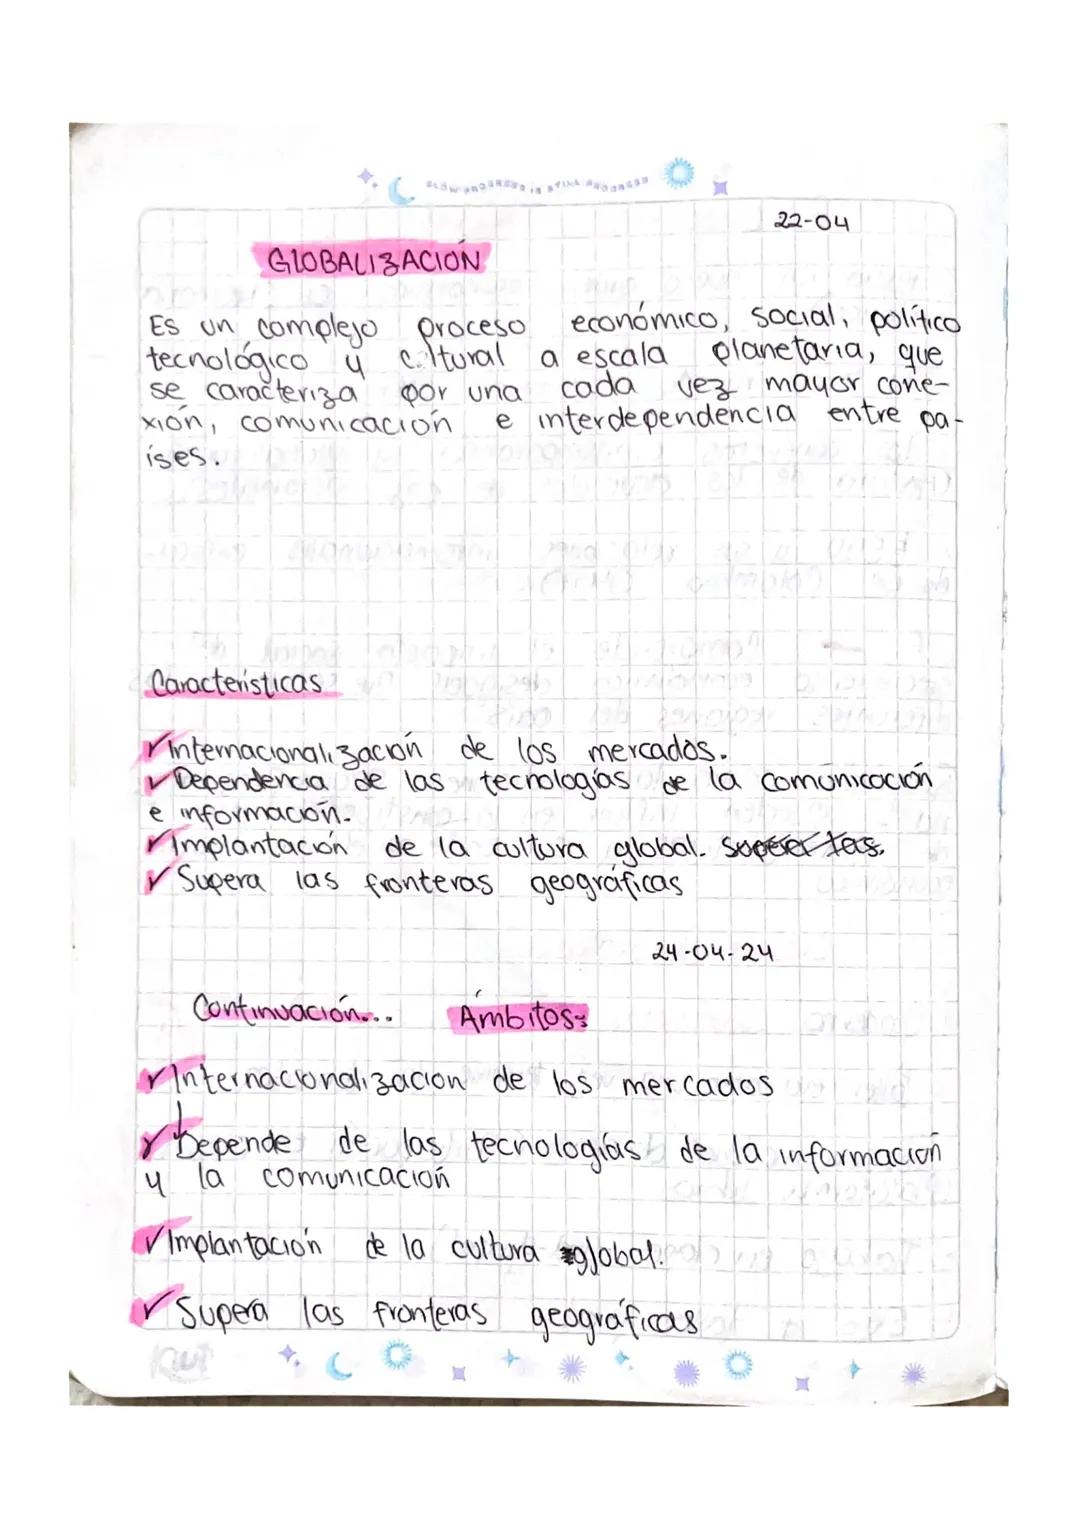 SLOW PROGRESS IS STILL PROGRESS
22-04
GLOBALIZACIÓN
Es un complejo proceso económico, social, político
tecnológico y cultural a escala planetaria, que
se caracteriza por una cada vez mayor cone-
xión, comunicación e interdependencia entre pa-
íses.
Caracteristicas
✓Internacionalización de los mercados.
✓Dependencia de las tecnologías de la comunicación
e información.
✓Implantación de la cultura global.
✓Supera las fronteras geográficas
24-04-24
Continuación... Ámbitos:
✓Internacionalización de los mercados
✓Depende de las tecnologías de la información
y la comunicación
✓Implantación de la cultura global.
✓Supera las fronteras geográficas